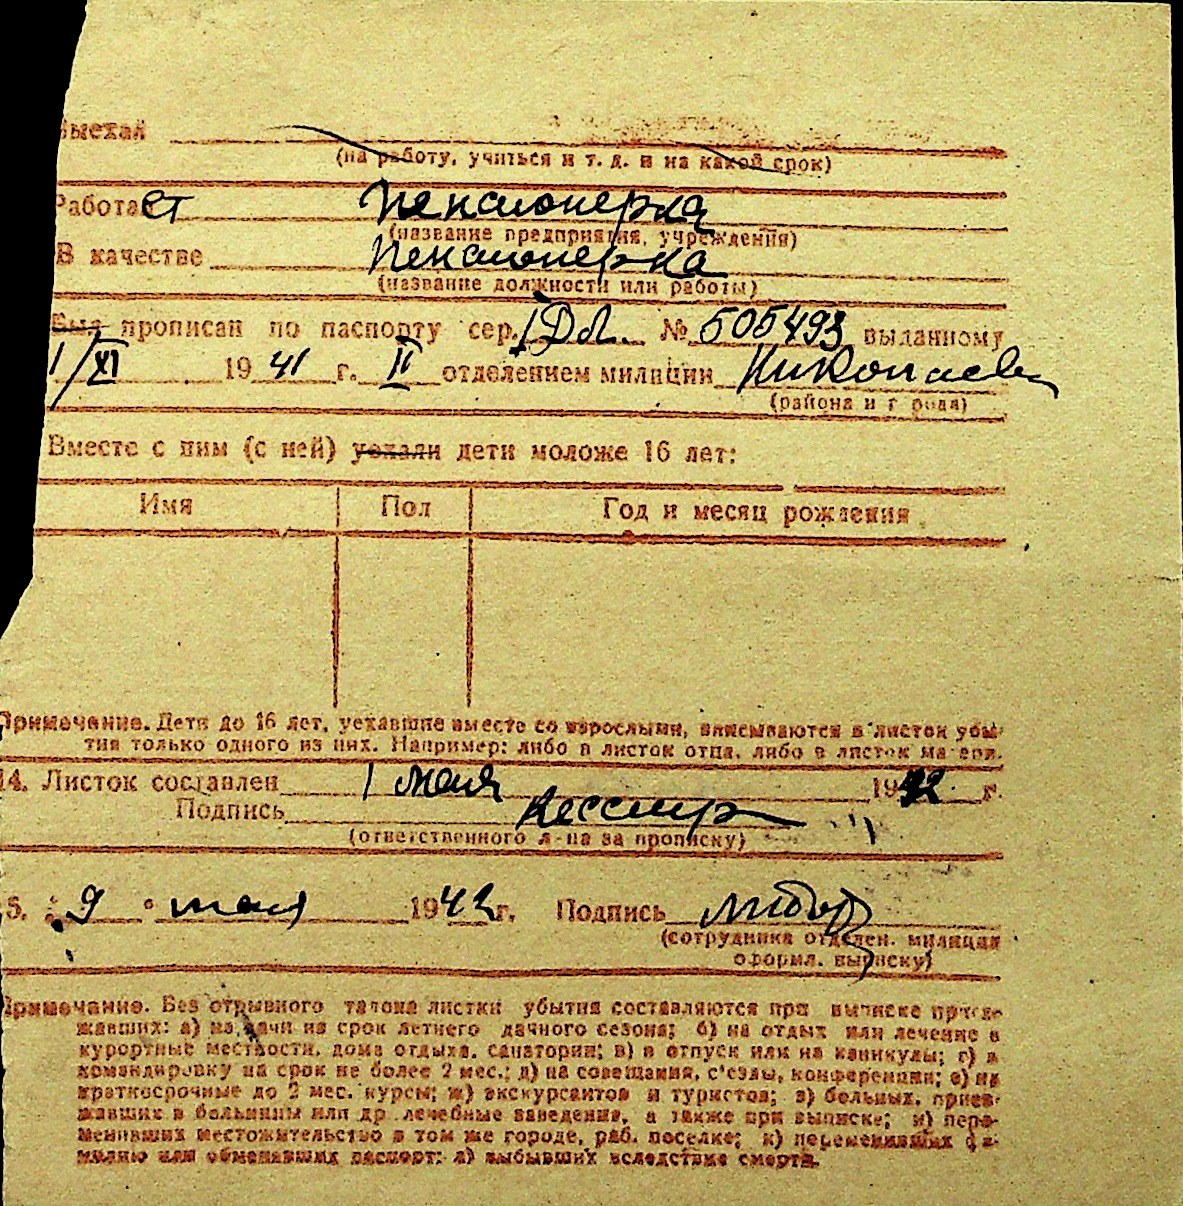 Выехал
(на работу, учиться и т. д. и на какой срок)
Работает пенсионерка
(название предприятия, учреждения)
В качестве пенсионерка
(название должности или работы)
Был прописан по паспорту сер. № 505493 выданному
1/XI 1941 г. II отделением милиции Николаев
(района и города)
Вместе с ним (с ней) уехали дети моложе 16 лет:
Имя Пол Год и месяц рождения
Примечание. Дети до 16 лет, уехавшие вместе со взрослыми, вписываются в листок убы-
тия только одного из них. Например: либо в листок отца, либо в листок матери.
14. Листок составлен 1 мая 1942 г.
Подпись
(ответственного л-ца за прописку)
5. 9 мая 1942 г. Подпись
(сотрудника отделен. милиции
оформл. выписку)
Примечание. Без отрывного талона листки убытия составляются при выписке приез-
жавших: а) на дачи на срок летнего дачного сезона; б) на отдых или лечение в
курортные местности, дома отдыха, санатории; в) в отпуск или на каникулы; г) в
командировку на срок не более 2 мес.; д) на совещания, с'езды, конференции; е) на
краткосрочные до 2 мес. курсы; ж) экскурсантов и туристов; з) больных, приез-
жавших в больницы или др. лечебные заведения, а также при выписке; и) пере-
менивших местожительство в том же городе, раб. поселке; к) переменивших фа-
милию или обменявших паспорт; л) выбывших вследствие смерти.